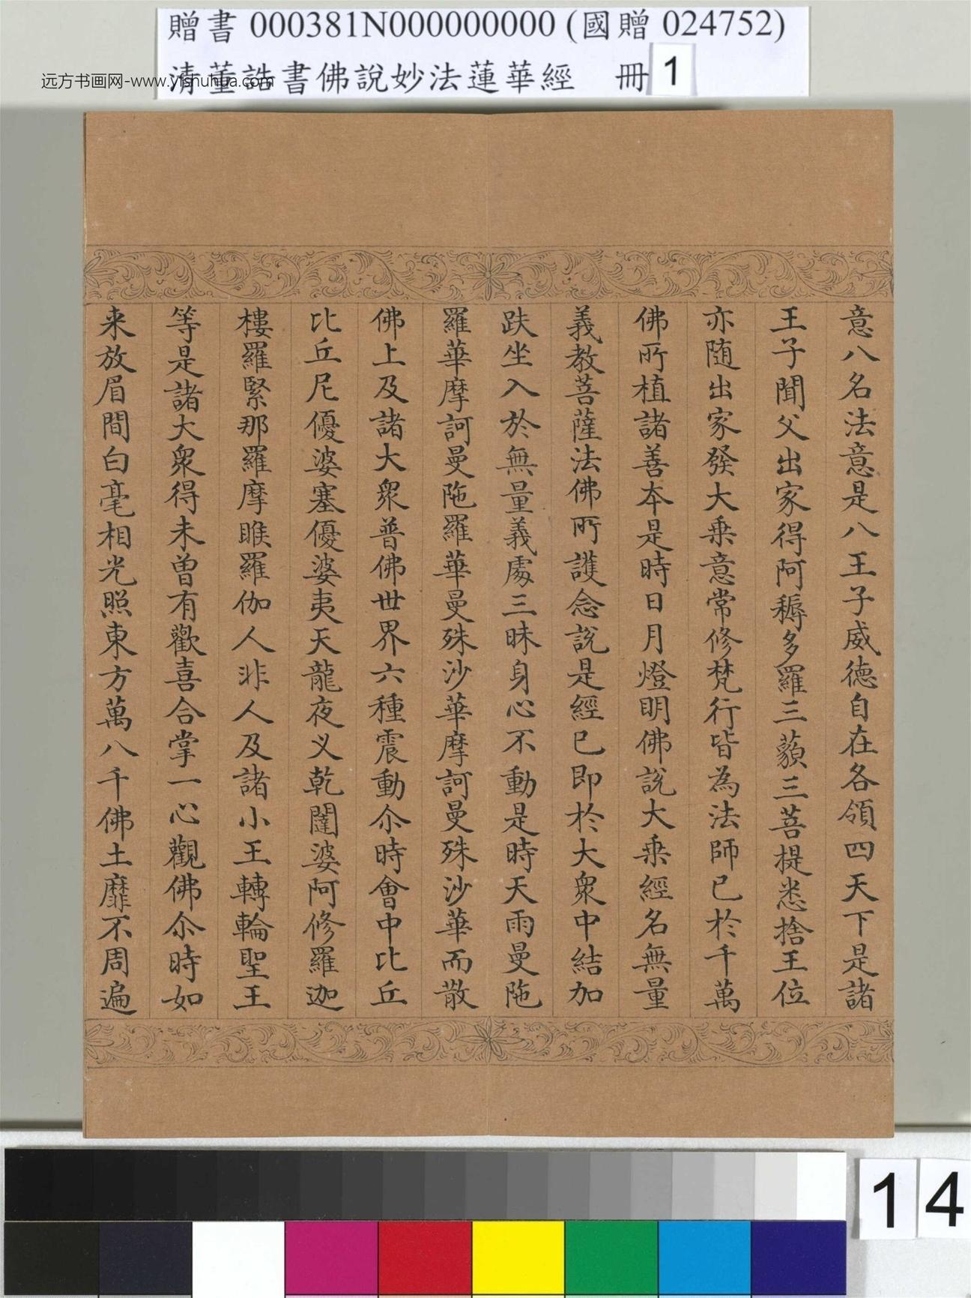 贈書 000381N000000000 (國贈 024752)
清董誥書佛說妙法蓮華經 冊 1
远方书画网-www.yishuhua.com
意八名法意是八王子威德自在各領四天下是諸
王子聞父出家得阿耨多羅三藐三菩提悉捨王位
亦随出家發大乘意常修梵行皆為法師已於千萬
佛所植諸善本是時日月燈明佛說大乘經名無量
義教菩薩法佛所護念說是經已即於大衆中結加
趺坐入於無量義處三昧身心不動是時天雨曼陁
羅華摩訶曼陁羅華曼殊沙華摩訶曼殊沙華而散
佛上及諸大衆普佛世界六種震動尒時會中比丘
比丘尼優婆塞優婆夷天龍夜叉乾闥婆阿修羅迦
樓羅緊那羅摩睺羅伽人非人及諸小王轉輪聖王
等是諸大衆得未曾有歡喜合掌一心觀佛尒時如
来放眉間白毫相光照東方萬八千佛土靡不周遍
14